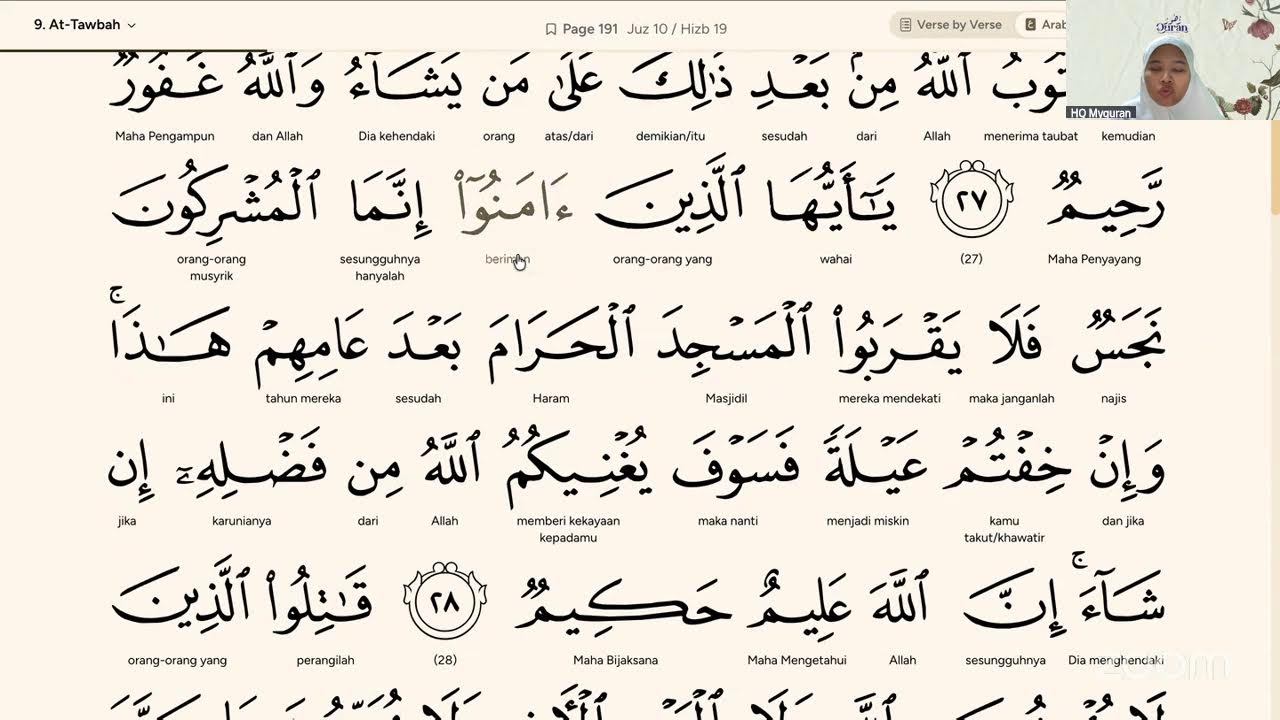 9. At-Tawbah
Page 191 Juz 10 / Hizb 19
Verse by Verse
Arab
Qurán
HQ Myquran
ٱللَّهُ مِنۢ بَعْدِ ذَٰلِكَ عَلَىٰ مَن يَشَآءُ وَٱللَّهُ غَفُورٌ
kemudian menerima taubat Allah dari sesudah demikian/itu atas/dari orang Dia kehendaki dan Allah Maha Pengampun
رَّحِيمٌ ٢٧ يَـٰٓأَيُّهَا ٱلَّذِينَ ءَامَنُوٓا۟ إِنَّمَا ٱلْمُشْرِكُونَ
Maha Penyayang (27) wahai orang-orang yang beriman sesungguhnya hanyalah orang-orang musyrik
نَجَسٌ فَلَا يَقْرَبُوا۟ ٱلْمَسْجِدَ ٱلْحَرَامَ بَعْدَ عَامِهِمْ هَـٰذَا ۚ
najis maka janganlah mereka mendekati Masjidil Haram sesudah tahun mereka ini
وَإِنْ خِفْتُمْ عَيْلَةً فَسَوْفَ يُغْنِيكُمُ ٱللَّهُ مِن فَضْلِهِۦٓ إِن
dan jika kamu takut/khawatir menjadi miskin maka nanti memberi kekayaan kepadamu Allah dari karunianya jika
شَآءَ ۚ إِنَّ ٱللَّهَ عَلِيمٌ حَكِيمٌ ٢٨ قَـٰتِلُوا۟ ٱلَّذِينَ
Dia menghendaki sesungguhnya Allah Maha Mengetahui Maha Bijaksana (28) perangilah orang-orang yang
zoom